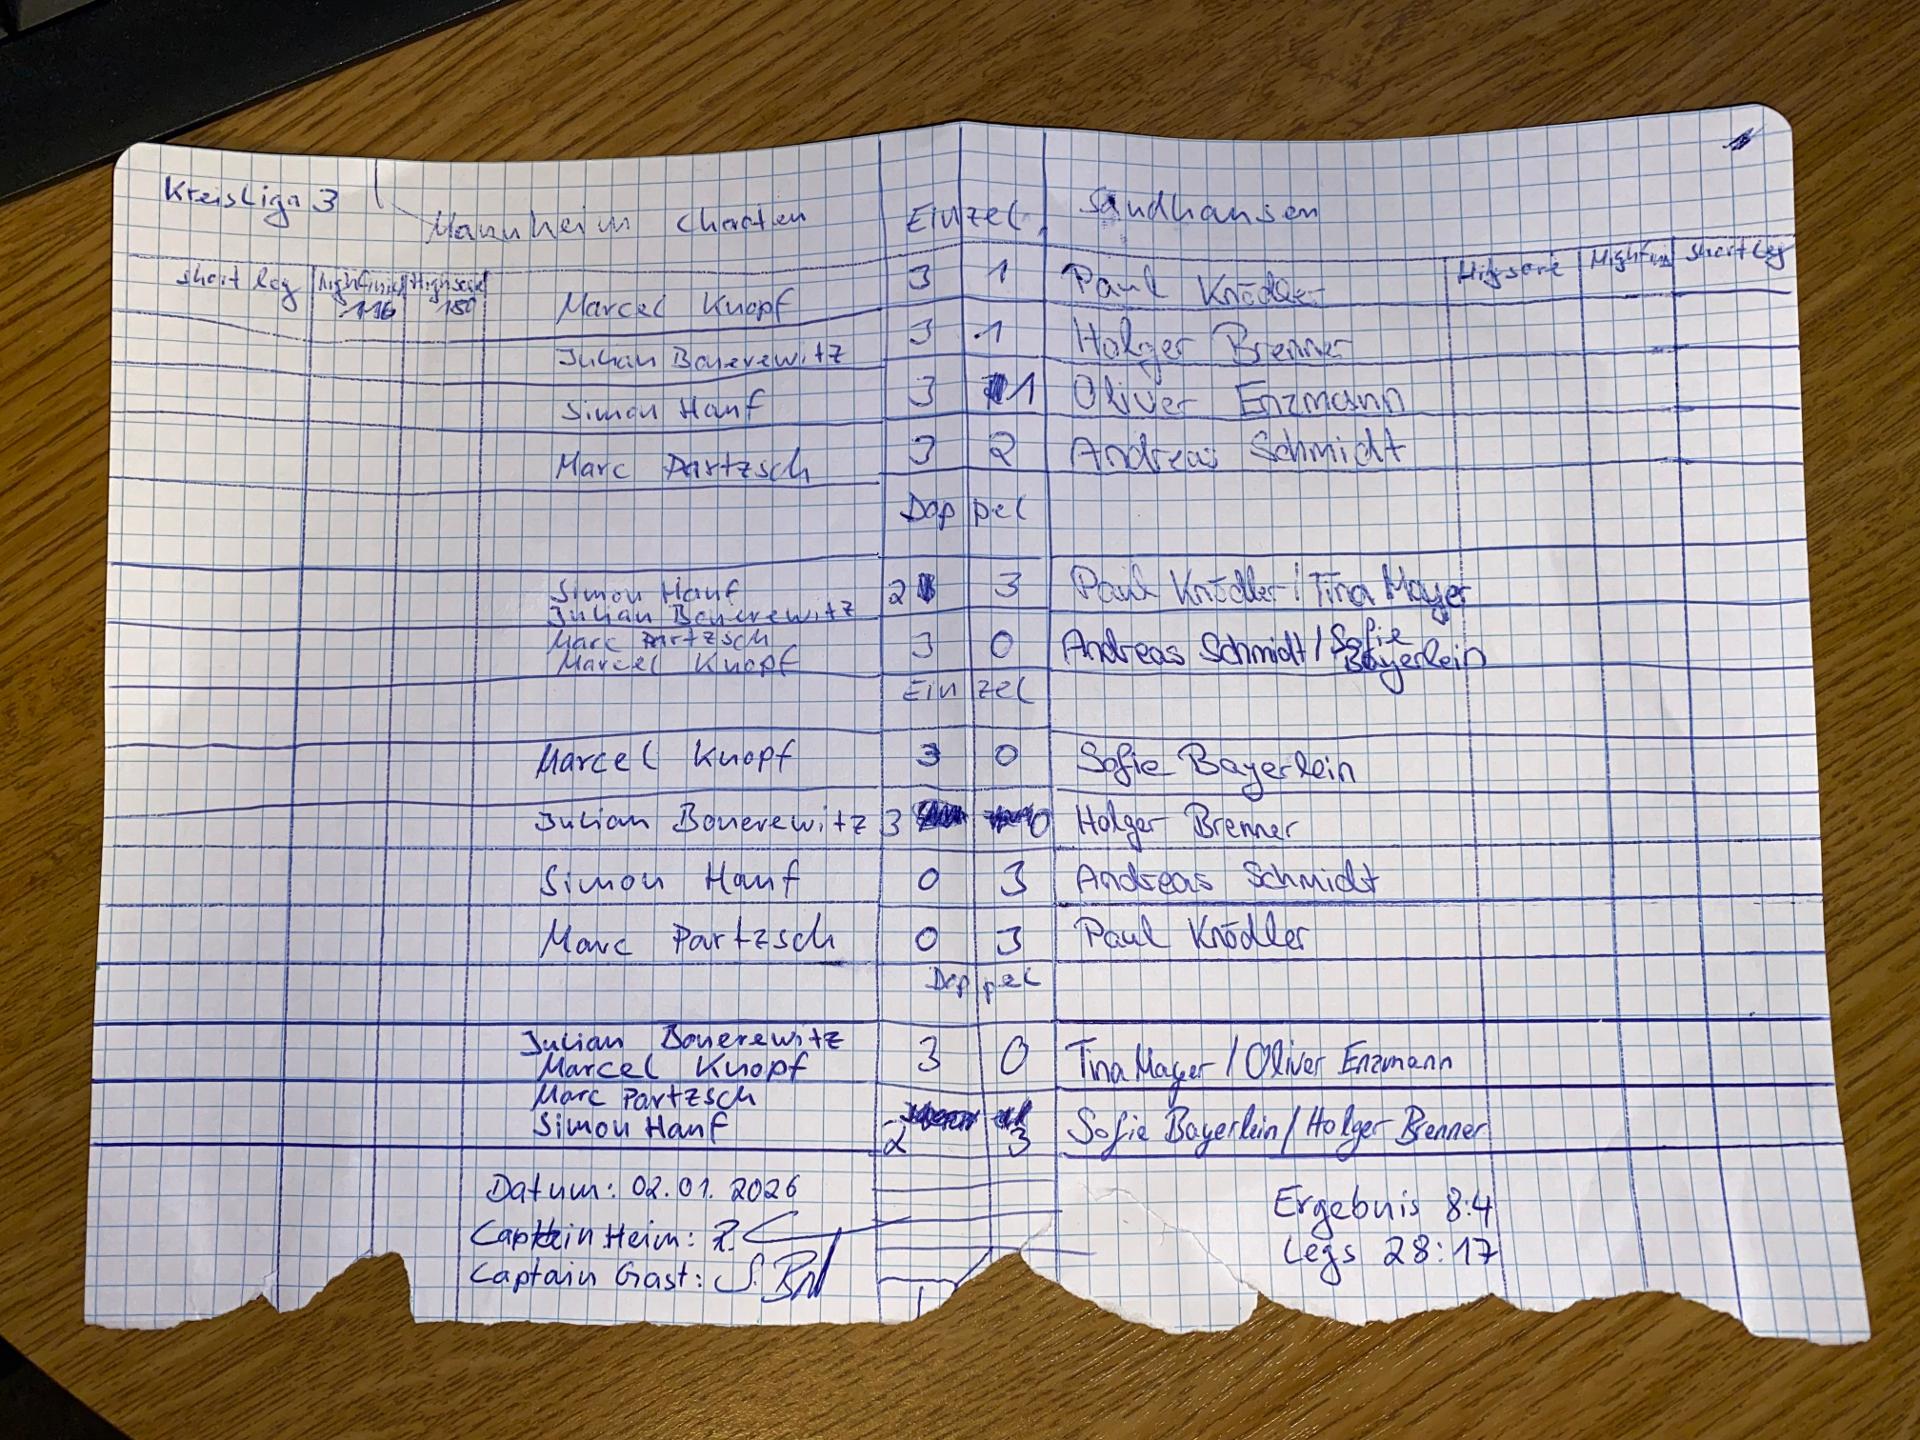 Kreisliga 3 Mannheim Chaoten Einzel Sandhausen
short leg highfinish Highscore Higscore Highfin Short leg
116 180 Marcel Knopf 3 1 Paul Knödler
Julian Bonerewitz 3 1 Holger Brenner
Simon Hanf 3 1 Oliver Enzmann
Marc Partzsch 3 2 Andreas Schmidt
Doppel
Simon Hanf 2 3 Paul Knödler / Tina Mayer
Julian Bonerewitz
Marc Partzsch 3 0 Andreas Schmidt / Sofie
Marcel Knopf Bayerlein
Einzel
Marcel Knopf 3 0 Sofie Bayerlein
Julian Bonerewitz 3 0 Holger Brenner
Simon Hanf 0 3 Andreas Schmidt
Marc Partzsch 0 3 Paul Knödler
Doppel
Julian Bonerewitz 3 0 Tina Mayer / Oliver Enzmann
Marcel Knopf
Marc Partzsch
Simon Hanf 2 3 Sofie Bayerlein / Holger Brenner
Datum: 02.01.2026
Captain Heim:
Captain Gast:
Ergebnis 8:4
Legs 28:17